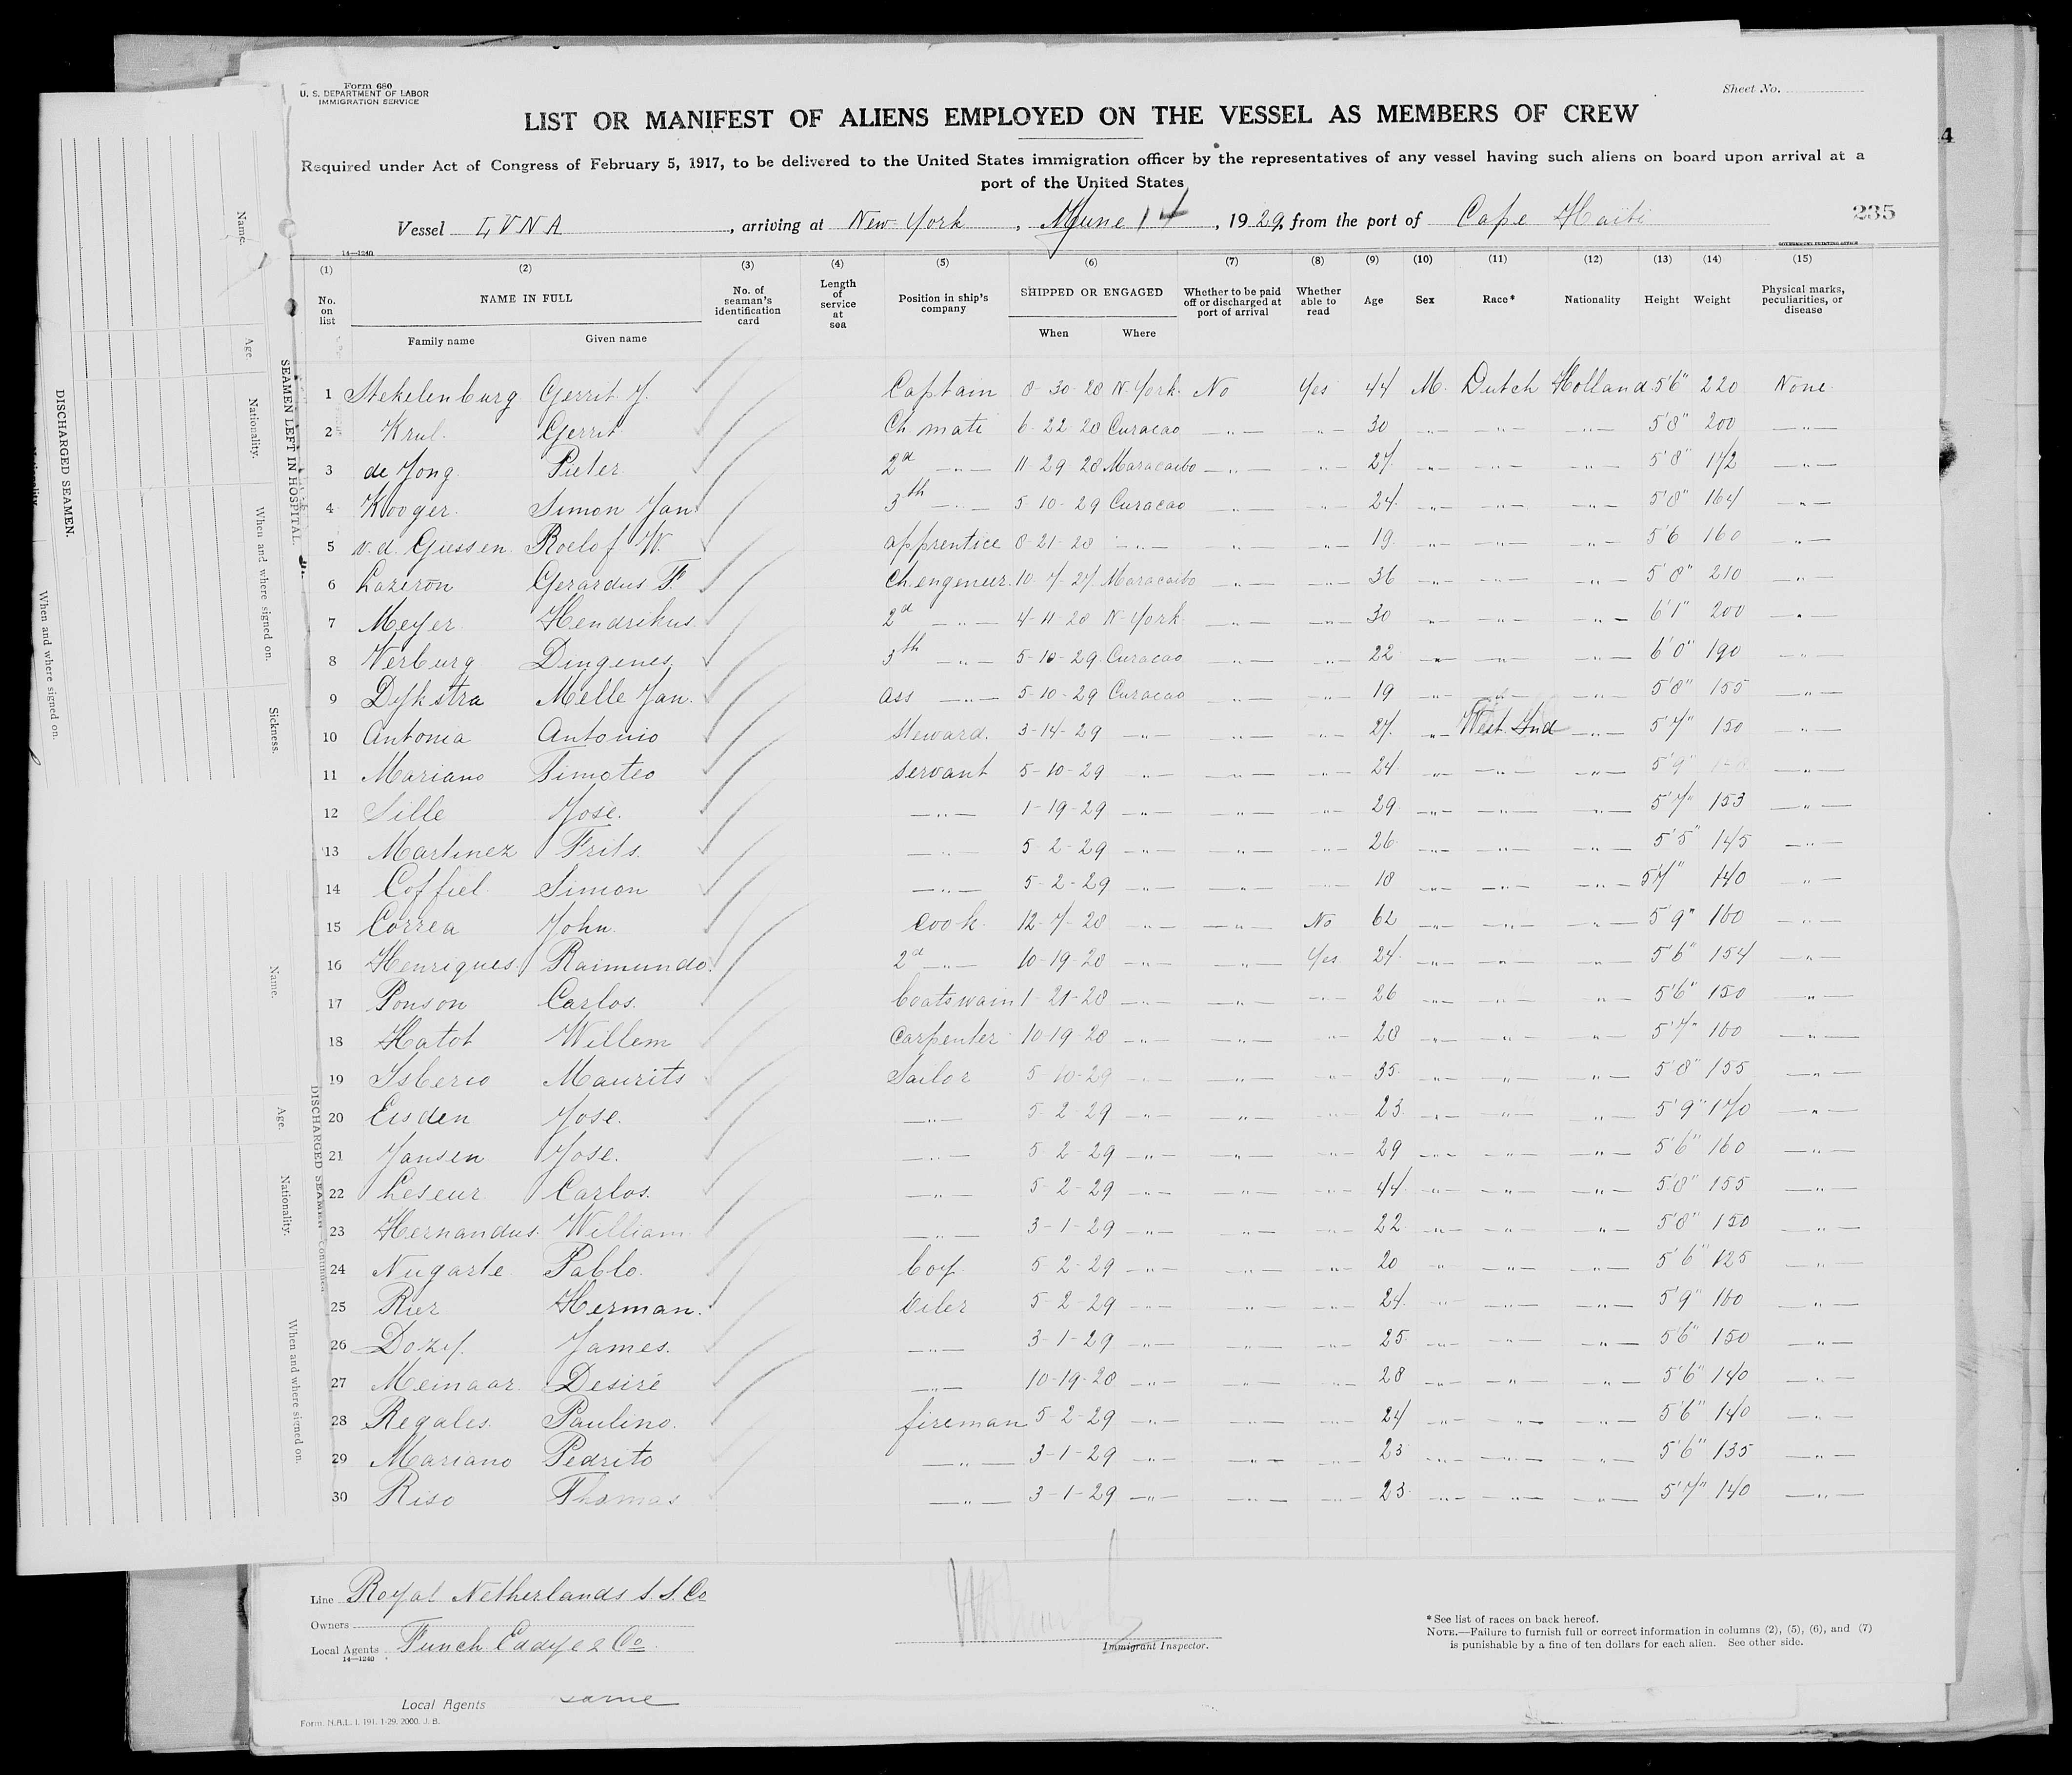 Form 680
U. S. DEPARTMENT OF LABOR
IMMIGRATION SERVICE
Sheet No.
LIST OR MANIFEST OF ALIENS EMPLOYED ON THE VESSEL AS MEMBERS OF CREW
Required under Act of Congress of February 5, 1917, to be delivered to the United States immigration officer by the representatives of any vessel having such aliens on board upon arrival at a
port of the United States
Vessel LUNA, arriving at New York, June 14, 1929, from the port of Cape Haiti 235
14—1240 GOVERNMENT PRINTING OFFICE
(1) (2) (3) (4) (5) (6) (7) (8) (9) (10) (11) (12) (13) (14) (15)
No. on list NAME IN FULL No. of seaman's identification card Length of service at sea Position in ship's company SHIPPED OR ENGAGED Whether to be paid off or discharged at port of arrival Whether able to read Age Sex Race* Nationality Height Weight Physical marks, peculiarities, or disease
Family name Given name When Where
1 Stekelenburg Gerrit J. Captain 8-30-28 N-York. No Yes 44 M. Dutch Holland 5'6" 220 None
2 Krul Gerrit Ch mate 6-22-28 Curacao —"— —"— 30 —"— —"— —"— 5'8" 200 —"—
3 de Jong Pieter 2d —"— 11-29-28 Maracaibo —"— —"— 27 —"— —"— —"— 5'8" 172 —"—
4 Kooger Simon Jan 3th —"— 5-10-29 Curacao —"— —"— 24 —"— —"— —"— 5'8" 164 —"—
5 v.d. Gussen Roelof W. apprentice 8-21-28 —"— —"— —"— 19 —"— —"— —"— 5'6 160 —"—
6 Lazeron Gerardus F. Ch engeneer 10-7-27 Maracaibo —"— —"— 36 —"— —"— —"— 5'8" 210 —"—
7 Meyer Hendrikus 2d —"— 4-11-28 N-York —"— —"— 30 —"— —"— —"— 6'1" 200 —"—
8 Verburg Dingenes 3th —"— 5-10-29 Curacao —"— —"— 22 —"— —"— —"— 6'0" 190 —"—
9 Dykstra Melle Jan. ass —"— 5-10-29 Curacao —"— —"— 19 —"— —"— —"— 5'8" 155 —"—
10 Antonia Antonio Steward. 3-14-29 —"— —"— —"— 27 —"— West. Ind —"— 5'7" 150 —"—
11 Mariano Timoteo servant 5-10-29 —"— —"— —"— 24 —"— —"— —"— 5'9" —"—
12 Sille Jose. —"— 1-19-29 —"— —"— —"— 29 —"— —"— —"— 5'7" 153 —"—
13 Martinez Frits —"— 5-2-29 —"— —"— —"— 26 —"— —"— —"— 5'5" 145 —"—
14 Coffiel Simon —"— 5-2-29 —"— —"— —"— 18 —"— —"— —"— 5'7" 140 —"—
15 Correa John. cook 12-7-28 —"— —"— No 62 —"— —"— —"— 5'9" 160 —"—
16 Henriques Raimundo. 2d —"— 10-19-28 —"— —"— Yes 24 —"— —"— —"— 5'6" 154 —"—
17 Ponson Carlos. boatswain 1-21-28 —"— —"— —"— 26 —"— —"— —"— 5'6" 150 —"—
18 Hatot Willem carpenter 10-19-28 —"— —"— —"— 28 —"— —"— —"— 5'7" 160 —"—
19 Isberio Maurits Sailor 5-10-29 —"— —"— —"— 35 —"— —"— —"— 5'8" 155 —"—
20 Eisden Jose. —"— 5-2-29 —"— —"— —"— 23 —"— —"— —"— 5'9" 170 —"—
21 Jansen Jose. —"— 5-2-29 —"— —"— —"— 29 —"— —"— —"— 5'6" 160 —"—
22 Leseur Carlos. —"— 5-2-29 —"— —"— —"— 44 —"— —"— —"— 5'8" 155 —"—
23 Hernandus William —"— 3-1-29 —"— —"— —"— 22 —"— —"— —"— 5'8" 150 —"—
24 Nugarte Pablo. boy 5-2-29 —"— —"— —"— 20 —"— —"— —"— 5'6" 125 —"—
25 Rier Herman. Oiler 5-2-29 —"— —"— —"— 24 —"— —"— —"— 5'9" 160 —"—
26 Dozy. James. —"— 3-1-29 —"— —"— —"— 25 —"— —"— —"— 5'6" 150 —"—
27 Meinaar. Desiré —"— 10-19-28 —"— —"— —"— 28 —"— —"— —"— 5'6" 140 —"—
28 Regales Paulino. fireman 5-2-29 —"— —"— —"— 24 —"— —"— —"— 5'6" 140 —"—
29 Mariano Pedrito —"— 3-1-29 —"— —"— —"— 23 —"— —"— —"— 5'6" 135 —"—
30 Riso Thomas —"— 3-1-29 —"— —"— —"— 23 —"— —"— —"— 5'7" 140 —"—
Line Royal Netherlands S.S. Co
Owners
Local Agents Funch Eddye & Co
14—1240
Immigrant Inspector.
*See list of races on back hereof.
NOTE.—Failure to furnish full or correct information in columns (2), (5), (6), and (7)
is punishable by a fine of ten dollars for each alien. See other side.
Local Agents same
Form. N.A.L. 1. 191. 1-29. 2000. J. B.
SEAMEN LEFT IN HOSPITAL.
Name. Age. Nationality. When and where signed on. Sickness.
DISCHARGED SEAMEN.
When and where signed on.
Nationality
DISCHARGED SEAMEN—Continued
Name. Age. Nationality. When and where signed on.
4